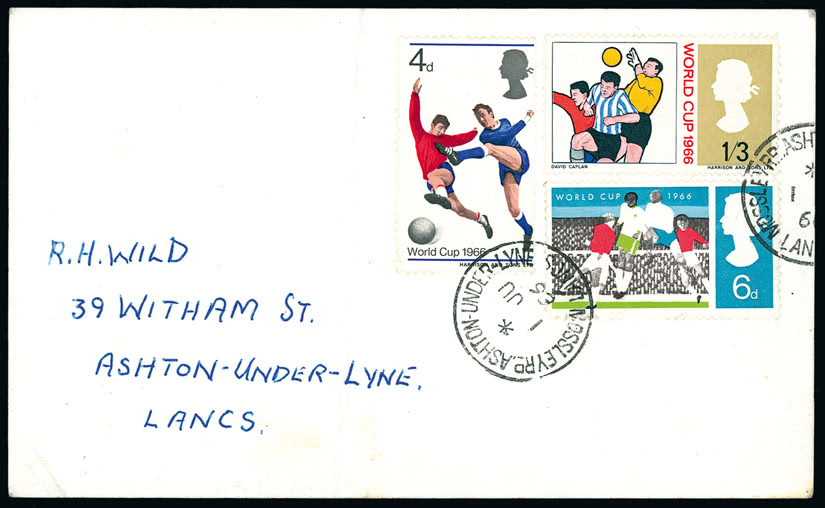 4d
World Cup 1966
HARRISON AND SONS LTD
WORLD CUP 1966
DAVID CAPLAN
HARRISON AND SONS LTD
1/3
WORLD CUP 1966
6d
MOSSLEY RD. ASHTON-UNDER-LYNE
1
JU
MOSSLEY RD. ASHT
LAN
R.H. WILD
39 WITHAM ST.
ASHTON-UNDER-LYNE.
LANCS.